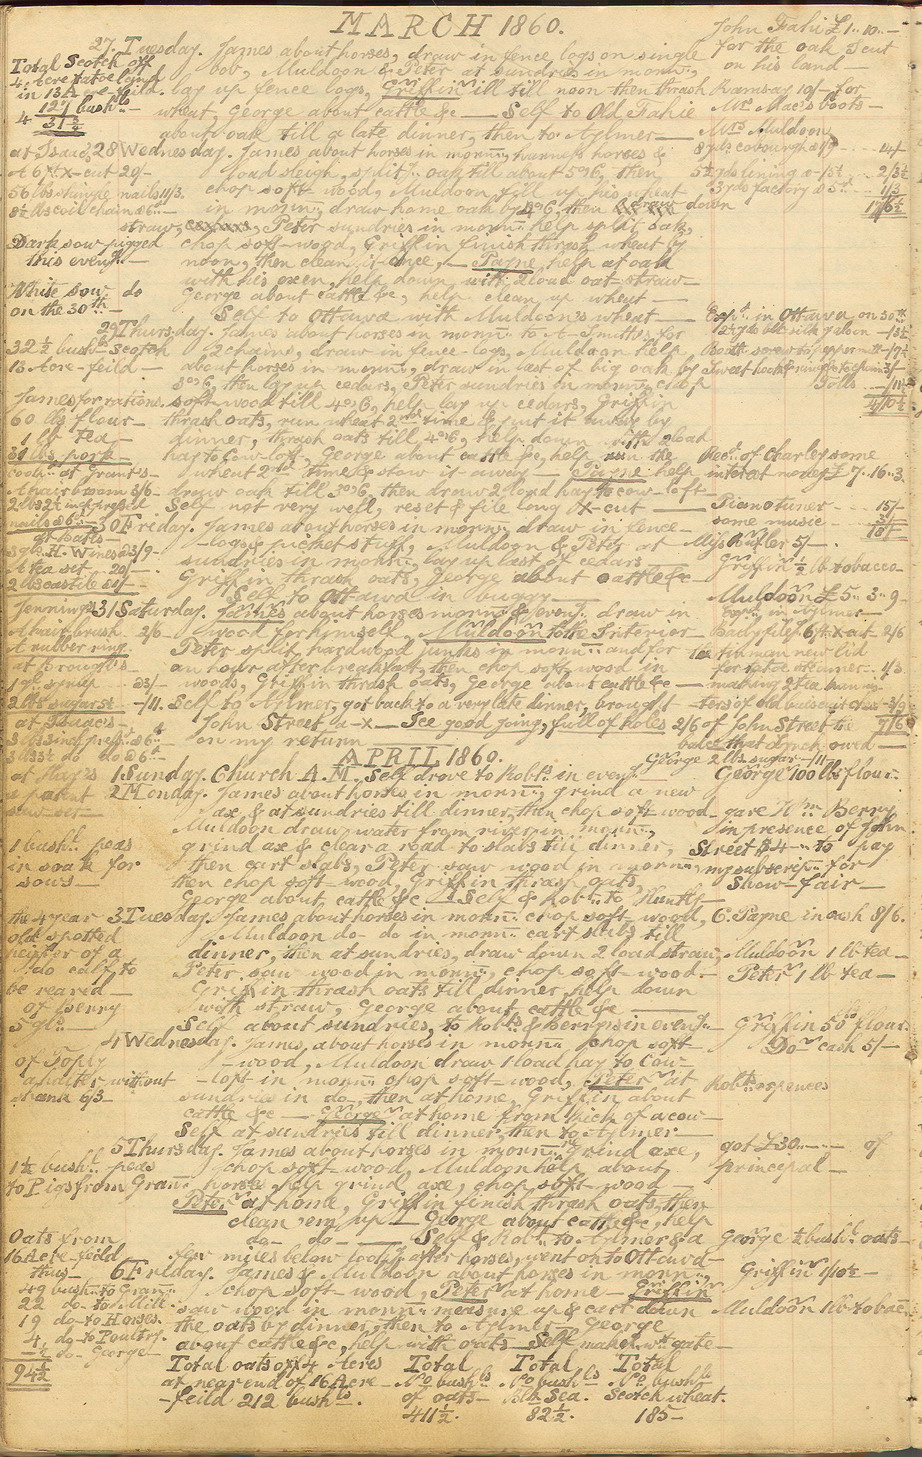 MARCH 1860.
John Fahi £1.. 10.. —
for the oak I cut
on his land —
27. Tuesday. James about horses, draw in fence logs on single
Total Scotch off
bob, Muldoon & Peter at sundries in morng,
4 Acre
in 13 Acre-feild.
lay up fence logs, Griffin ill till noon then thrash
Ramsay 10/- for
127 bushls
wheat, George about cattle &c — Self to Old Fahie
Mr. Mac's boots —
4 31 3/4
about oak till a late dinner, then to Aylmer —
Mrs. Muldoon
at Isaacs
28 Wednesday. James about horses in morng, harness horses &
14/-
A 6 ft X-cut 20/-
load sleigh, split oak till about 5 o 6, then
yds lining
56 lbs shingle nails
chop soft wood, Muldoon fill up his wheat
3 yds factory
8 1/2 lbs coil chain
in morng, draw home oak by 4 o 6, then draw down
17/6 1/2
straw, Peter sundries in morng help split oak,
Dark sow pigged
chop soft-wood, Griffin finish thrash wheat by
this eveng —
noon, then clean it once, — Payne help at oak
with his oxen, help down with 2 load oat-straw —
White sow do
George about cattle &c, help clean up wheat —
on the 30th —
Self to Ottawa with Muldoon's wheat —
Expt. in Ottawa on 30th
29 Thursday. James about horses in morng to A-Smiths for
32 1/2 bushls Scotch
2 chains, draw in fence-logs, Muldoon help
13 Acre-feild —
about horses in morng, draw in last of big oak by
3 o 6, then lay up cedars, Peter sundries in morng chop
Dolls
James for rations.
soft-wood till 4 o 6, help lay up cedars, Griffin
60 lbs flour —
thrash oats, run wheat 2nd time & put it away by
1 lb tea —
dinner, thrash oats till 4 o 6, help down with 2 load
lbs pork —
hay to Cow-loft, George about cattle &c, help run the
Rect. of Charley some
at Grant's —
wheat 2nd time & stow it away — Payne help
interest money £7.. 16.. 3
A hair broom 3/6 —
draw oak till 3 o 6, then draw 2 load hay to cow-loft —
Self not very well, reset & file long X-cut —
Piano tuner — 15/-
nails
30 Friday. James about horses in morng draw in fence —
some music — 3/-
18/-
at Bates —
-logs & picket stuff, Muldoon & Peter at
Miss Butler 5/- .
3 gls. H. Wines 3/9 —
sundries in morng lay up last of cedars —
Griffin 1/2 lb tobacco —
A tea set 20/-
Griffin thrash oats, George about cattle &c —
2 lbs castile
Self to Ottawa in buggy —
Muldoon £5.. 3.. 9 —
Jennings
31 Saturday. James about horses morng & eveng draw in
Expt. in Aylmer —
A hair brush 2/6 —
wood for himself, Muldoon to the Interior —
2/6
A rubber ring
Peter split hardwood junks in morng: and for
tin man new lid
at Brough's —
an hour after breakfast, then chop soft wood in
1 gl. syrup 3/- —
woods, Griffin thrash oats, George about cattle &c —
making
2 lbs sugar st -/11.
Self to Aylmer, got back to a very late dinner, brought
at Isaacs —
John Street u-x — Ice good going, full of holes
2/6 of John Street the
7/6
on my return
balce that Lynch owed —
APRIL 1860.
George 2 lbs sugar -/11 —
at Hay's
1 Sunday. Church A.M. Self drove to Robts. in eveng
George 100 lbs flour —
a patent
2 Monday. James about horses in morng, grind a new
saw-set —
axe & at sundries till dinner, then chop soft-wood —
gave Wm Berry
Muldoon draw water from river in morng,
in presence of John
1 bushl. peas
grind axe & clear a road to slabs till dinner,
Street $4 — to pay
in soak for
then cart slabs, Peter saw wood in morng
my subscripn for
sows —
then chop soft-wood, Griffin thrash oats,
Show-fair —
George about cattle &c — Self & Robt. to Hunt's —
the 4 year
3 Tuesday. James about horses in morng: chop soft-wood,
C. Payne in cash 8/6.
old spotted
Muldoon do do in morng cart slabs till
heifer of a
dinner, then at sundries, draw down 2 load straw,
Muldoon 1 lb tea —
do calf, to
Peter saw wood in morng, chop soft-wood —
Peter 1 lb tea —
be reared —
Griffin thrash oats till dinner, help down
of Berry
with straw, George about cattle &c —
5 gls. —
Self about sundries, to Robts. & Berrys in eveng —
Griffin 50 lbs flour
4 Wednesday. James, about horses in morng chop soft —
Do cash 5/-
of Toply
-wood, Muldoon draw 1 load hay to Cow —
a halter without
-loft in morng chop soft-wood, Peter at
Robts expences
shank 6/3 —
sundries in do, then at home, Griffin about
cattle &c — George at home from kick of a cow —
Self at sundries till dinner, then to Aylmer —
5 Thursday. James about horses in morng Grind axe,
got £30 — of
1 1/2 bushl. peas
chop soft wood, Muldoon help about
principal —
to Pigs from Gran.
horses, help grind axe, chop soft-wood —
Peter at home, Griffin finish thrash oats, then
clean 'em up — George about cattle &c, help
Oats from
do — do — Self & Robt. to Aylmer & a
George 1/2 bushl. oats —
16 Acre-feild
few miles below looking after horses, went on to Ottawa —
thus —
6 Friday. James & Muldoon about horses in morng,
Griffin 1/10 1/2 —
49 bushls to Gran.
chop soft-wood, Peter at home — Griffin
22 do — to Mill.
saw wood in morng measure up & cart down
Muldoon 1 lb tobac.
19 do — to Horses.
the oats by dinner, then to Aylmer — George
4 do — to Poultry.
about cattle &c, help with oats — Self make gate —
1/2 do — George
94 1/2
Total oats off 4 Acres
at near end of 16 Acre
-feild 212 bushls.
Total
No bushls
of oats —
411 1/2.
Total
No bushls
Blk Sea.
82 1/2.
Total
No bushls
Scotch wheat.
185 —